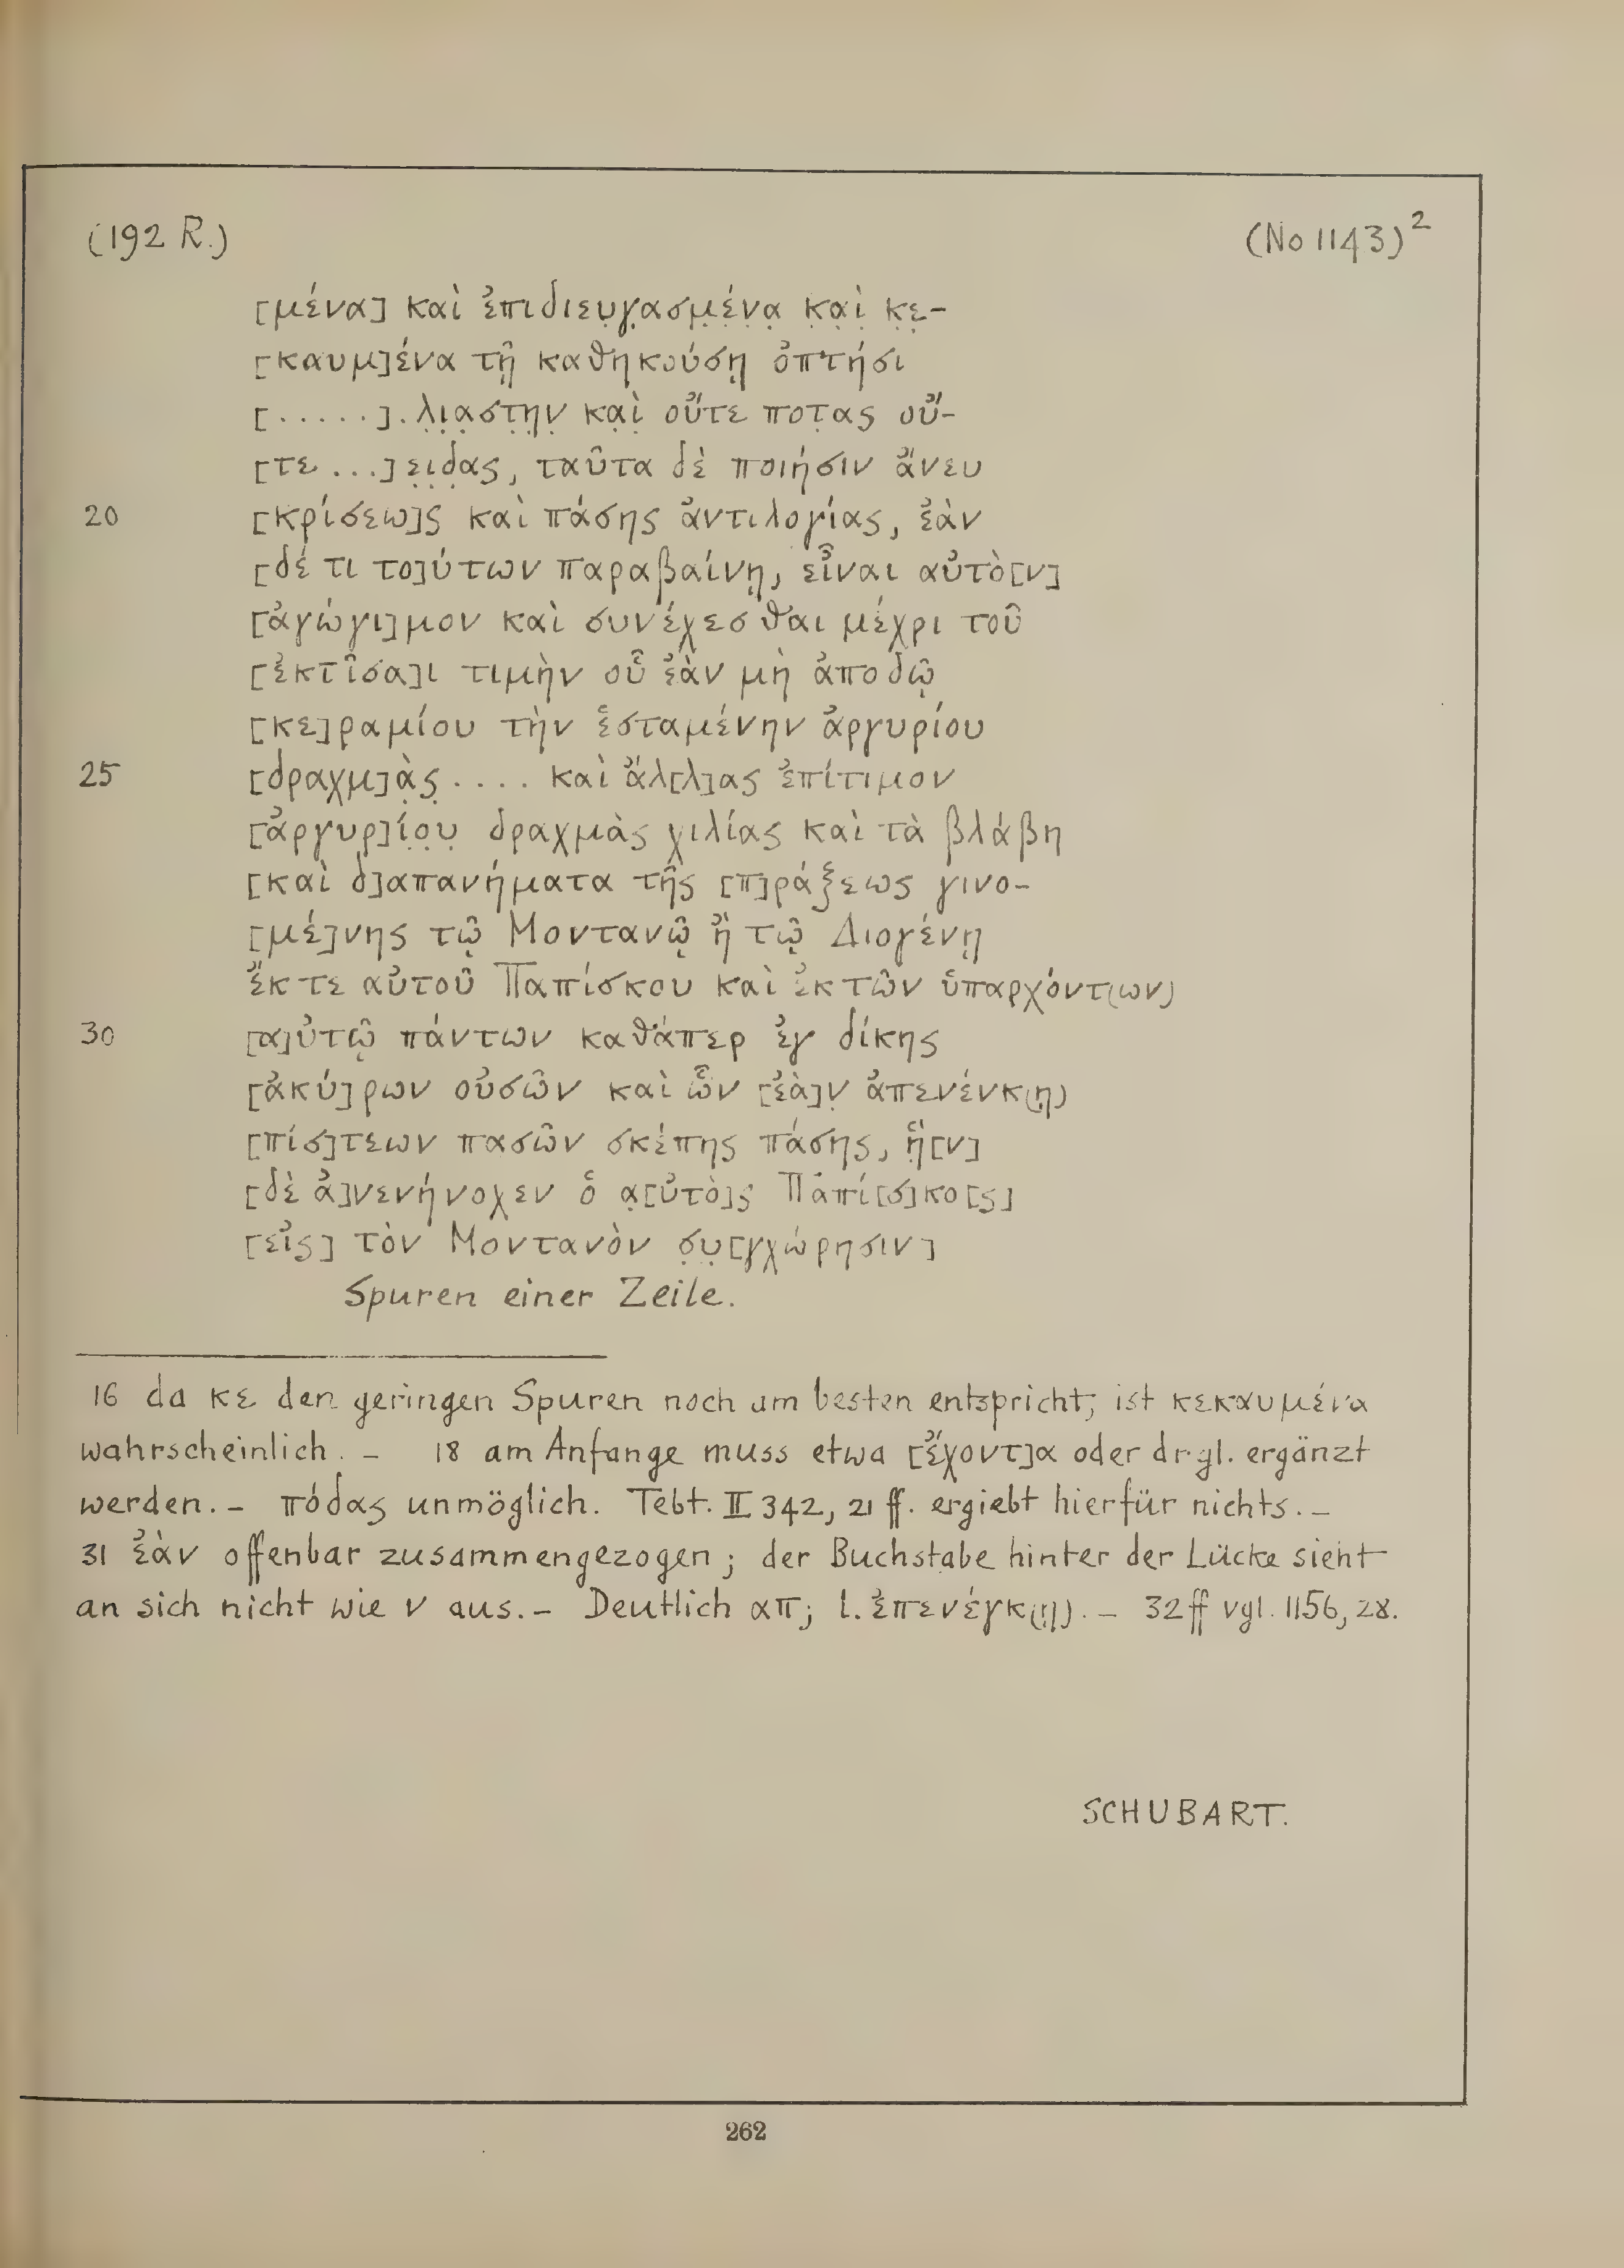 (192 R.) (No 1143)²
[μένα] καὶ ἐπιδιευ̣γ̣ασμ̣έ̣ν̣α̣ κ̣α̣ὶ̣ κ̣ε̣-
[καυμ]ένα τῇ καθηκούσῃ ὀπτήσι
[.....].λ̣ι̣α̣στ̣η̣ν̣ κα̣ὶ̣ οὔτε ποτ̣ας οὔ-
[τε ...]ε̣ι̣δ̣ας, ταῦτα δὲ ποιήσιν ἄνευ
20 [κρίσεω]ς καὶ πάσης ἀντιλογίας, ἐὰν
[δέ τι το]ύτων παραβαίνῃ, εἶναι αὐτὸ[ν]
[ἀγώγι]μον καὶ συνέχεσθαι μέχρι τοῦ
[ἐκτῖσα]ι τιμὴν οὗ ἐὰν μὴ ἀποδῶ̣ι
[κε]ραμίου τὴν ἑσταμένην ἀργυρίου
25 [δραχμ]ὰ̣ς̣ .... καὶ ἄλ[λ]ας ἐπίτιμον
[ἀργυρ]ί̣ο̣υ̣ δραχμὰς χιλίας καὶ τὰ βλάβη
[καὶ δ]απανήματα τῆς [π]ράξεως γινο-
[μέ]νης τῷ Μοντανῷ ἢ τῷ Διογένῃ
ἔκ τε αὐτοῦ Παπίσκου καὶ ἐκ τῶν ὑπαρχόντ(ων)
30 [α]ὐτῷ πάντων καθάπερ ἐγ δίκης
[ἀκύ]ρων οὐσῶν καὶ ὧν [ἐὰ]ν̣ ἀπενένκ(ῃ)
[πίσ]τεων πασῶν σκέπης πάσης, ἣ[ν]
[δὲ ἀ]νενήνοχεν ὁ α̣[ὐτὸ]ς Παπί[σ]κο[ς]
[εἰς] τὸν Μοντανὸν σ̣υ̣[γχώρησιν]
Spuren einer Zeile.
16 da κε den geringen Spuren noch am besten entspricht, ist κεκαυμένα
wahrscheinlich. – 18 am Anfange muss etwa [ἔχοντ]α oder drgl. ergänzt
werden. – πόδας unmöglich. Tebt. II 342, 21 ff. ergiebt hierfür nichts. –
31 ἐὰν offenbar zusammengezogen; der Buchstabe hinter der Lücke sieht
an sich nicht wie ν aus. – Deutlich απ; l. ἐπενέγκ(ῃ). – 32 ff vgl. 1156, 28.
SCHUBART.
262